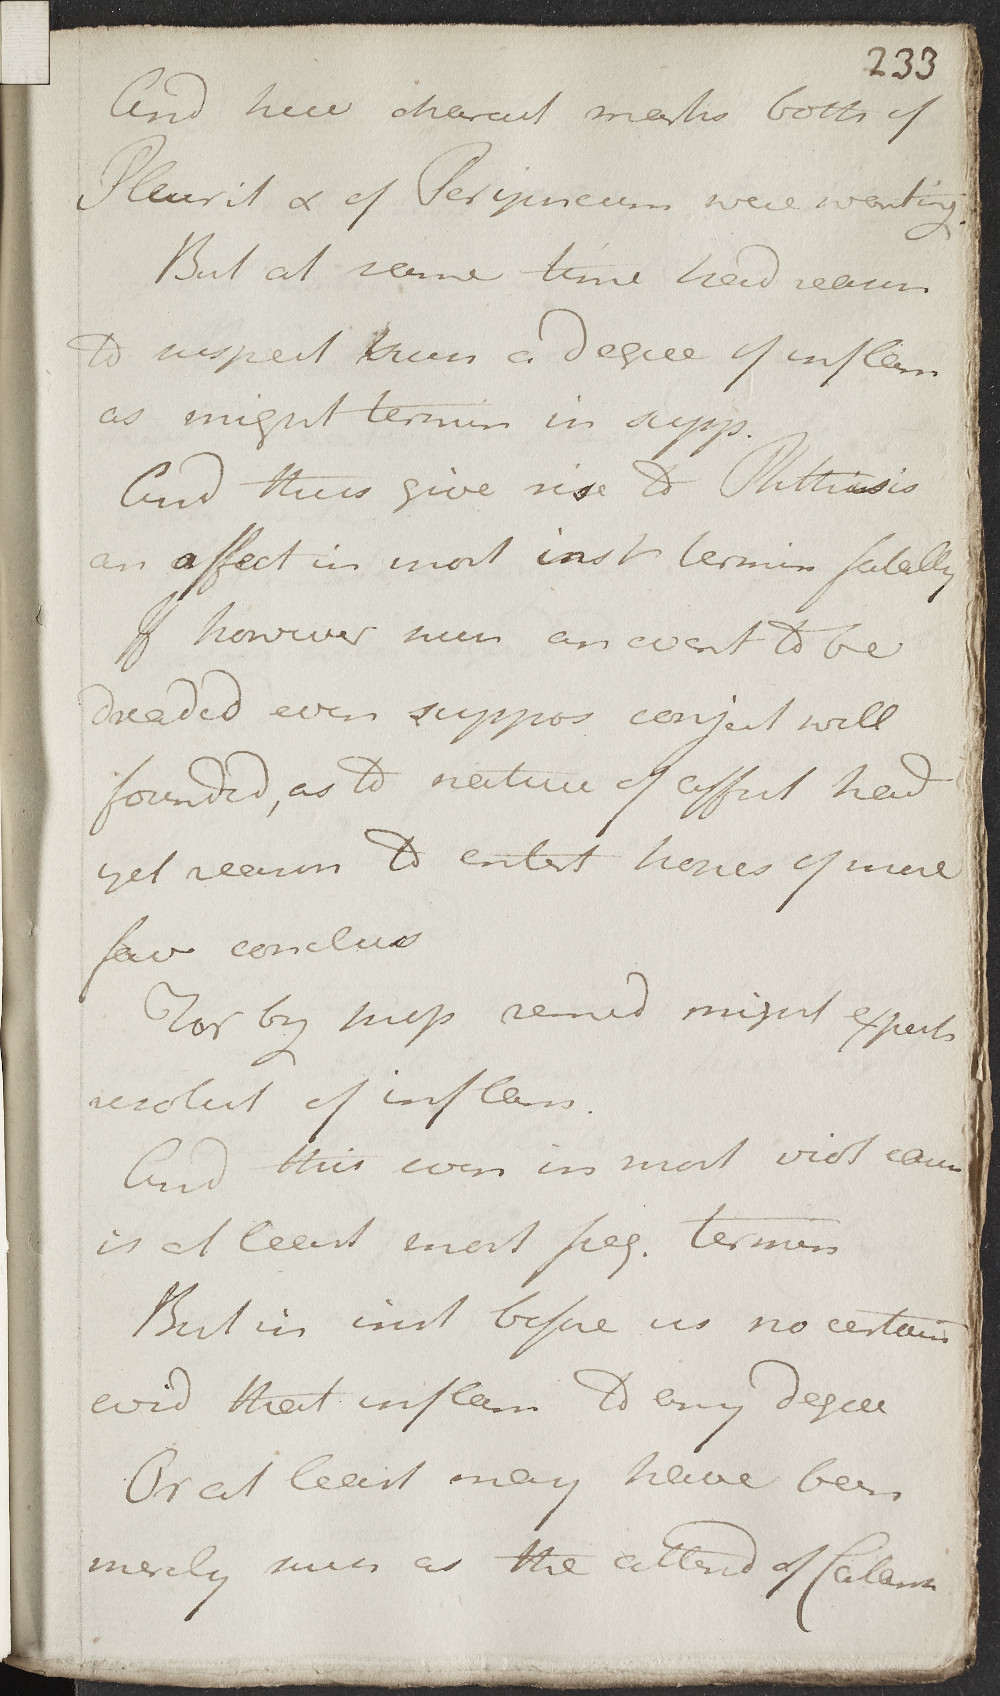 233
And here charact marks both of
Pleurit & of Peripneum were wanting.
But at same time had reason
to suspect such a degree of inflam
as might termin in supp.
And thus give rise to Phthisis
an affect in most inst termin fatally
If however such an event to be
dreaded even suppos conject well
founded, as to nature of affect had
yet reason to entert hopes of more
fav conclus
For by prop remed might expect
resolut of inflam.
And this even in most viol cases
is at least most freq. termin
But in inst before us no certain
evid that inflam to any degree
Or at least may have been
merely such as the attend of Catarrh